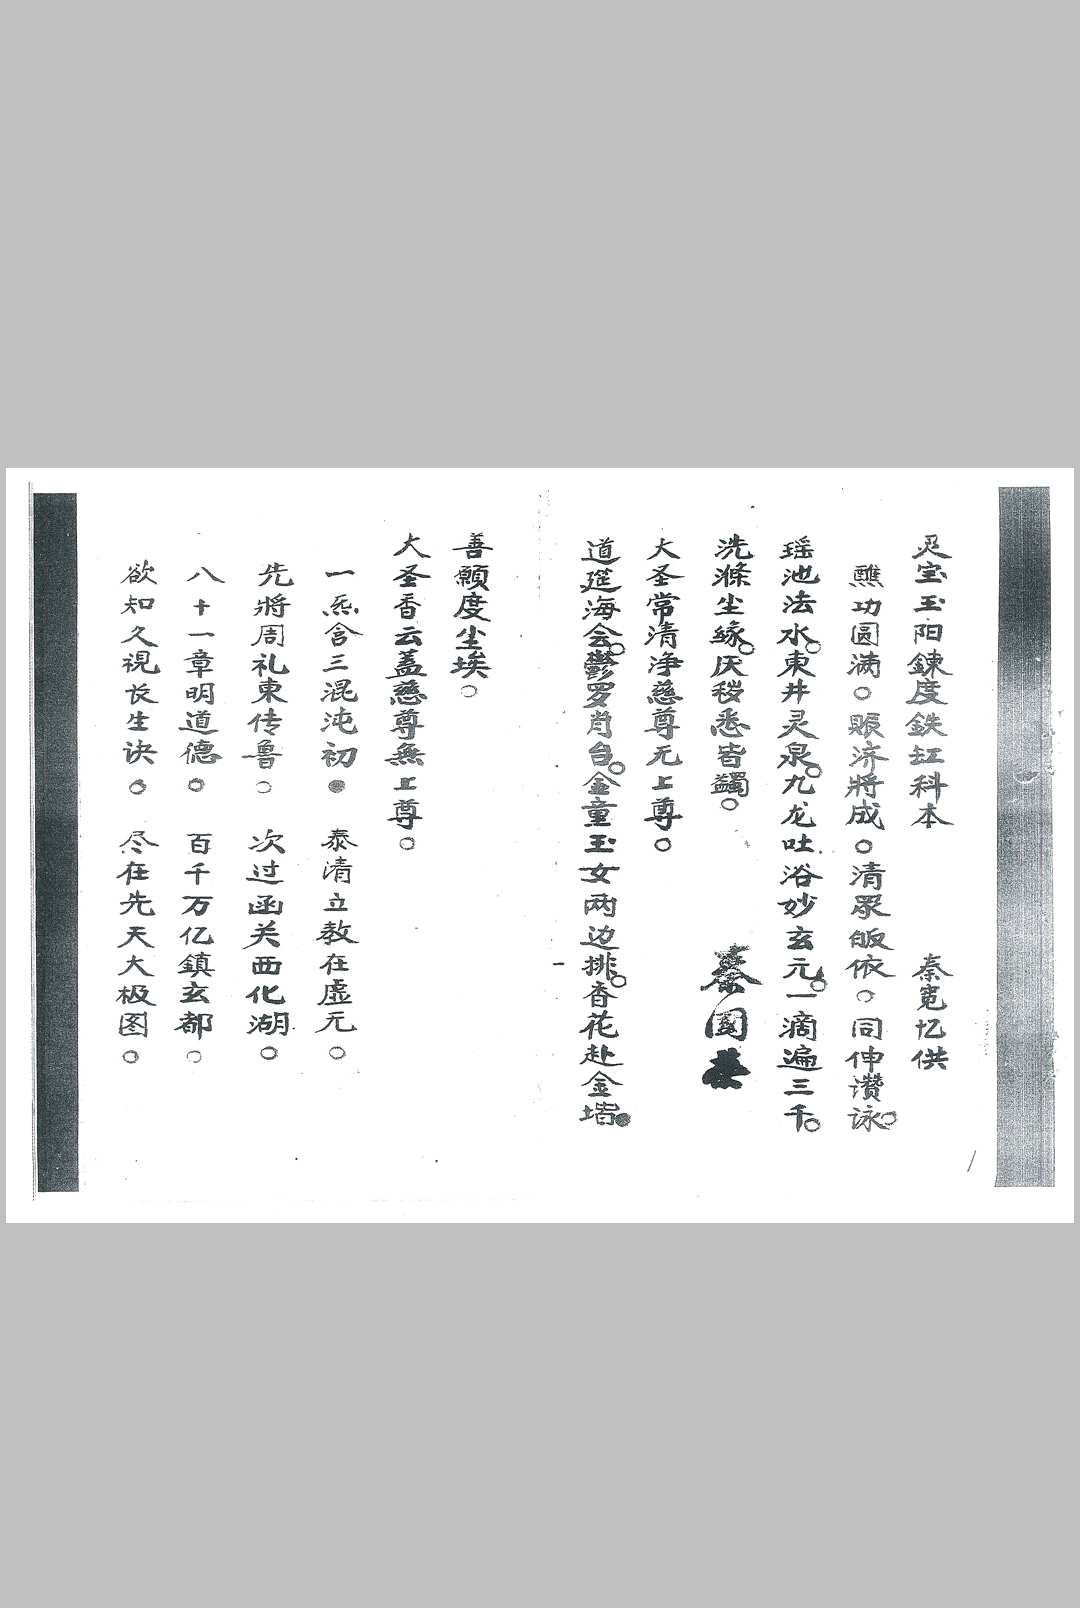 灵宝玉阳鍊度鉄缸科本 秦宽忆供
醮功圆满○赈济將成○清眾皈依○同伸讚詠○
瑶池法水○東井灵泉○九龙吐浴妙玄元○一滴遍三千○
洗滌尘緣○厌秽悉皆蠲○ 秦國
大圣常清净慈尊无上尊○
道筵海会○鬱罗肖台○金童玉女两边排○香花赴金堦○
善願度尘埃○
大圣香云盖慈尊無上尊○
一炁含三混沌初○ 泰清立教在虚无○
先將周礼東传鲁○ 次过函关西化湖○
八十一章明道德○ 百千万亿鎮玄都○
欲知久視长生诀○ 尽在先天大极图○